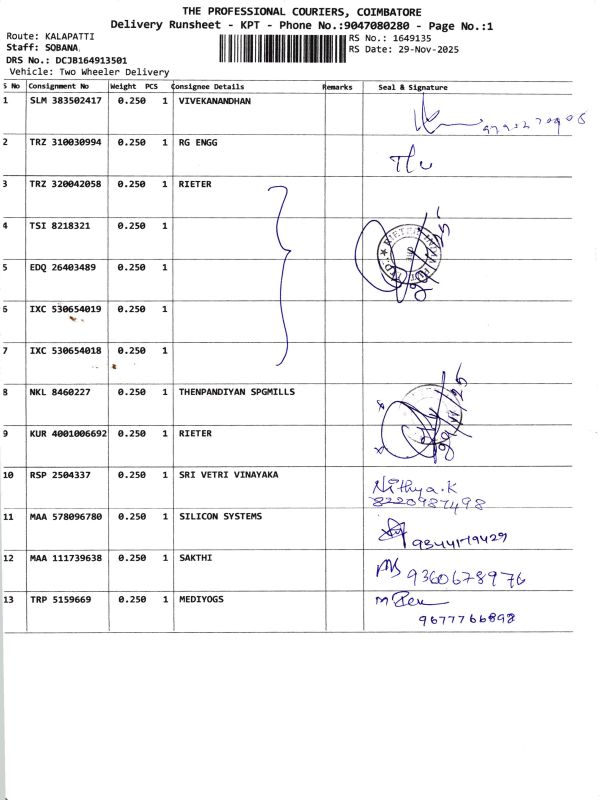 THE PROFESSIONAL COURIERS, COIMBATORE
Delivery Runsheet - KPT - Phone No.:9047080280 - Page No.:1
Route: KALAPATTI
RS No.: 1649135
Staff: SOBANA
RS Date: 29-Nov-2025
DRS No.: DCJB164913501
Vehicle: Two Wheeler Delivery
S No Consignment No Weight PCS Consignee Details Remarks Seal & Signature
1 SLM 383502417 0.250 1 VIVEKANANDHAN
2 TRZ 310030994 0.250 1 RG ENGG
3 TRZ 320042058 0.250 1 RIETER
4 TSI 8218321 0.250 1
5 EDQ 26403489 0.250 1
6 IXC 530654019 0.250 1
7 IXC 530654018 0.250 1
8 NKL 8460227 0.250 1 THENPANDIYAN SPGMILLS
9 KUR 4001006692 0.250 1 RIETER
29/11/25
10 RSP 2504337 0.250 1 SRI VETRI VINAYAKA Nithya.K
8220987498
11 MAA 578096780 0.250 1 SILICON SYSTEMS
9344179429
12 MAA 111739638 0.250 1 SAKTHI 9360678976
13 TRP 5159669 0.250 1 MEDIYOGS
9677766898